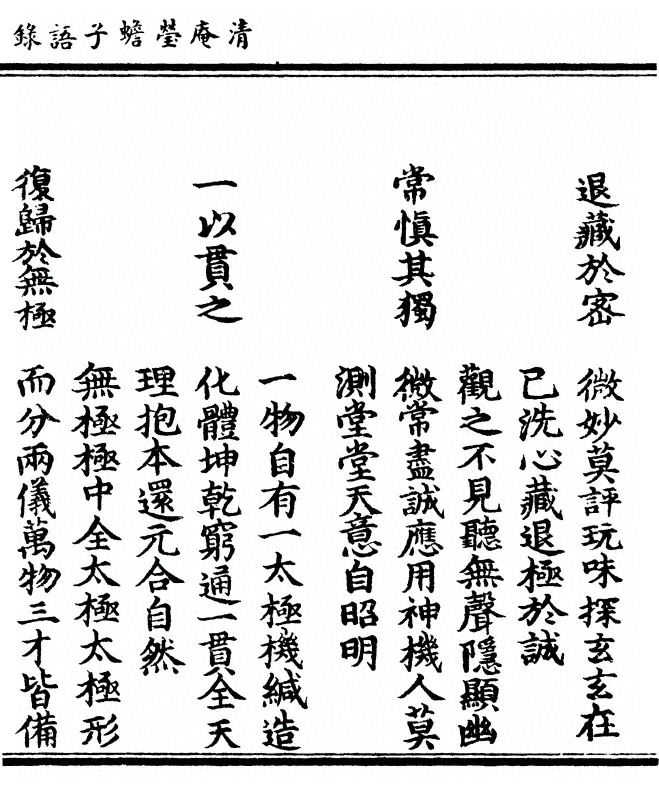 清庵瑩蟾子語錄
退藏於密
微妙莫評玩味探玄玄在
己洗心藏退極於誠
常慎其獨
觀之不見聽無聲隱顯幽
微常盡誠應用神機人莫
測堂堂天意自昭明
一以貫之
一物自有一太極機緘造
化體坤乾窮通一貫全天
理抱本還元合自然
復歸於無極
無極極中全太極太極形
而分兩儀萬物三才皆備